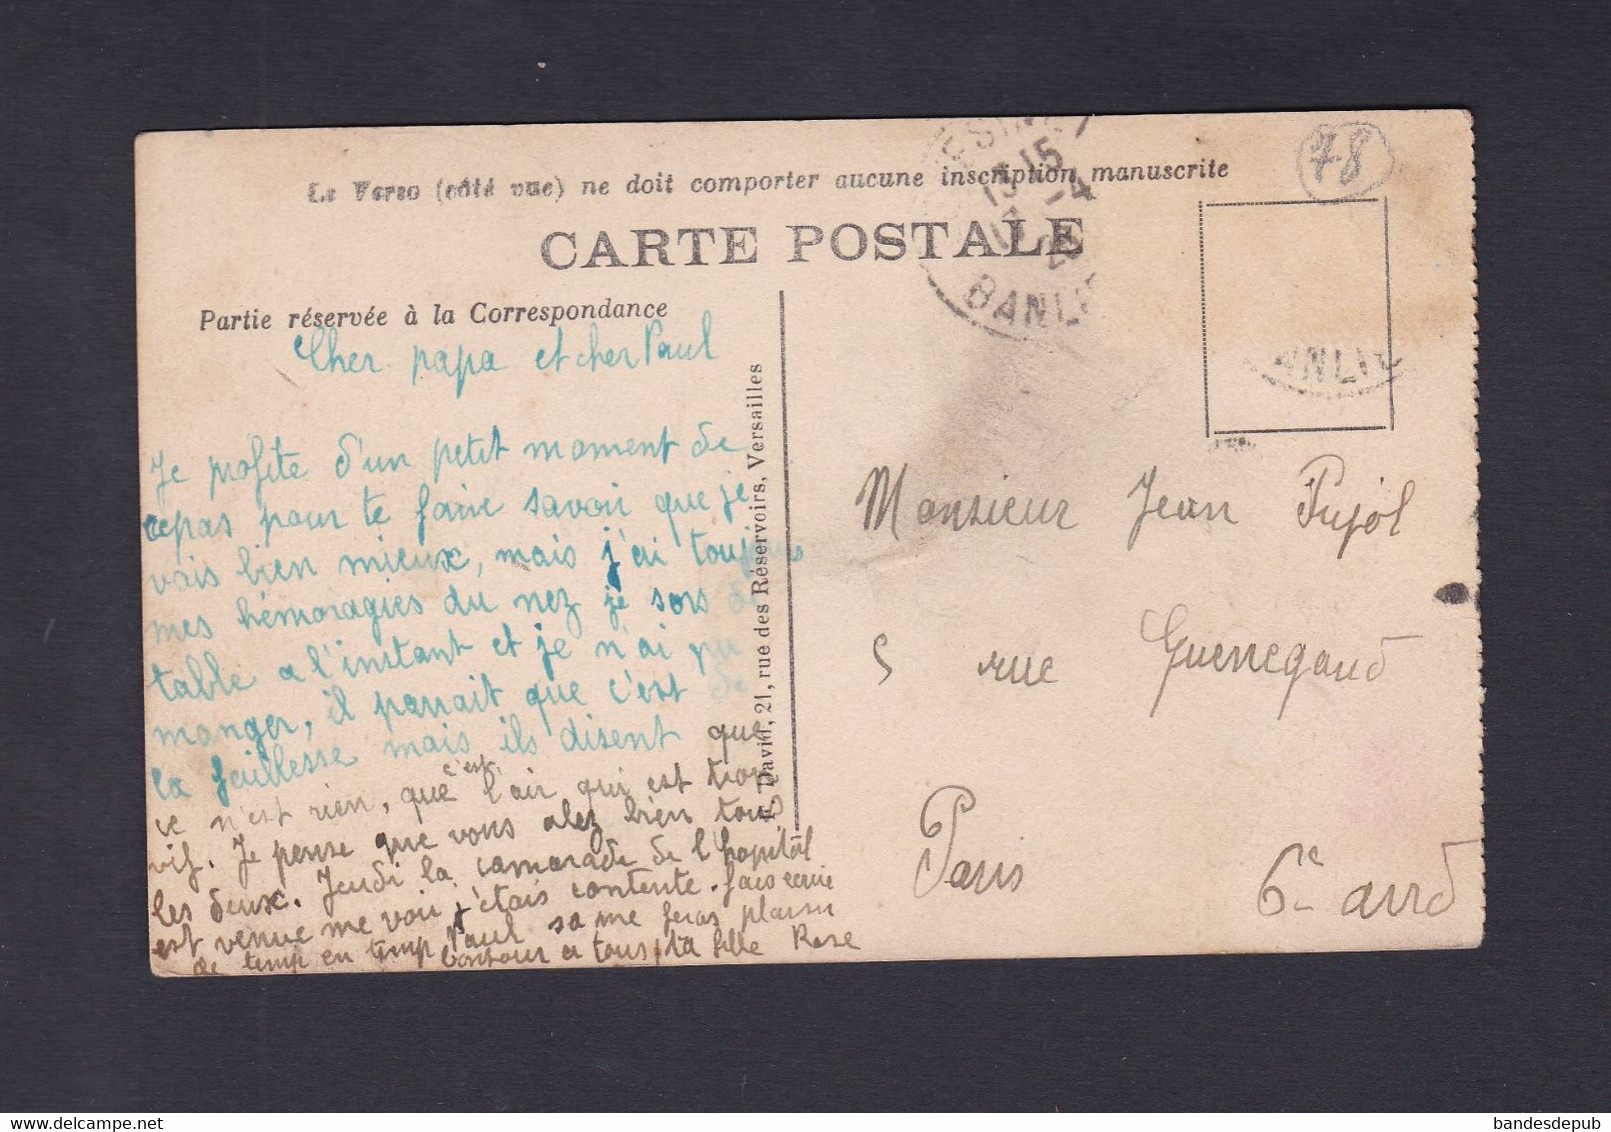 Le Verso (côté vue) ne doit comporter aucune inscription manuscrite
78
CARTE POSTALE
13 15
17 -4
BANLI
ANLIE
Partie réservée à la Correspondance
Cher papa et cher Paul
Je profite d'un petit moment de
repas pour te faire savoir que je
vais bien mieux, mais j'ai toujours
mes hémoragies du nez je sors de
table a l'instant et je n'ai pu
manger, il parrait que c'est de
la faiblesse mais ils disent que
ce n'est rien, que c'est l'air qui est trop
vif. Je pense que vous alez bien tous
les deux. Jeudi la camarade de l'hopital
est venue me voir j'étais contente. fais ecrire
de temp en temp Paul sa me feras plaisir
bonjour a tous, ta fille Rose
David, 21, rue des Réservoirs, Versailles
Monsieur Jean Pujol
5 rue Guenegaud
Paris 6e arrd
bandesdepub